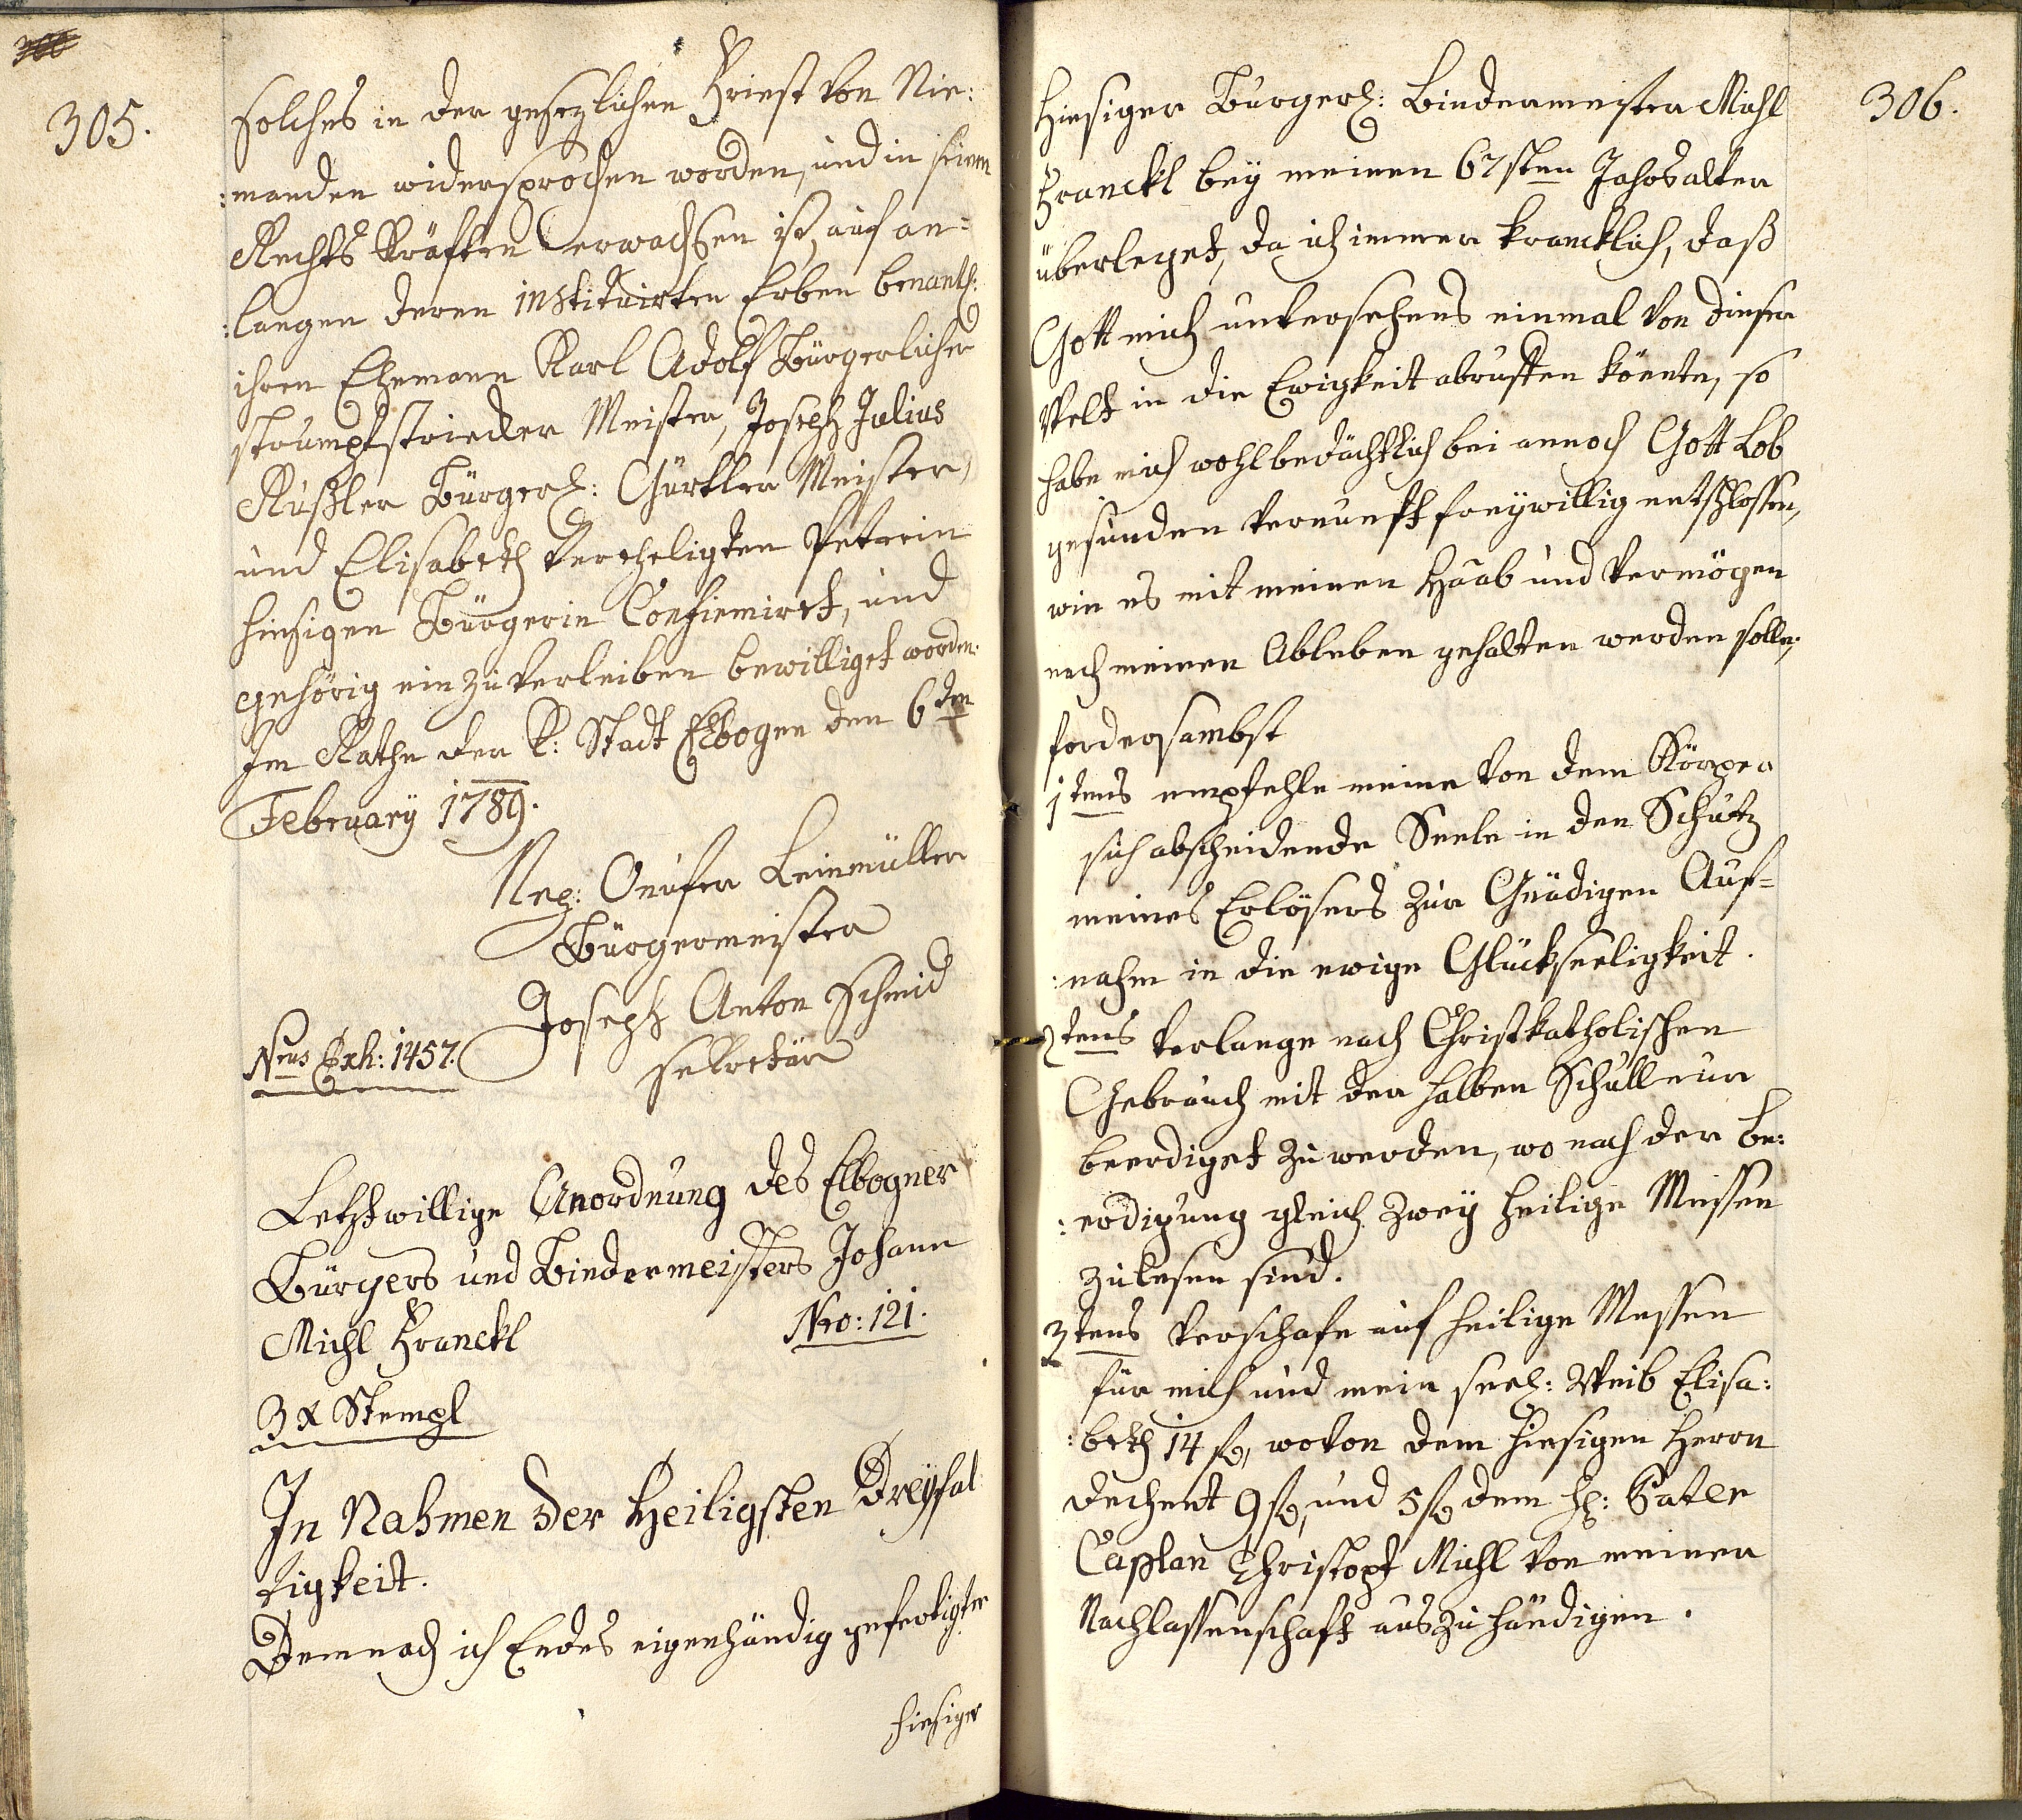 305.
solches in der gesezlichen Friest von Nie:
:manden widersprochen worden, und in seinen
Rechts Kräften erwachsen ist, auf an=
:langen deren instituirten Erben benantl:
ihren Ehemann Karl Adolf Bürgerlicher
strumpfstricker Meister, Joseph Julius
Rußler Bürgerl: Gürtler Meister,
und Elisabeth verehligten Petrin
hiesigen Bürgerin Confirmiret, und
gehörig einzuverleiben bewilliget worden.
Im Rathe der K: Stadt Elbogen den 6ten
February 1789.
Nep: Onufer Leinmüller
Bürgermeister
Joseph Anton Schmid
Sekretär
Nrus Exh: 1457.
Letztwillige Anordnung des Elbogner
Bürgers und Bindermeisters Johann
Michl Franckl
Nro: 121.
3 x Stempl
In Nahmen der Heiligsten Dreyfal
tigkeit.
Demnach ich Endes eigenhändig gefertigter
hiesiger
306.
Hiesiger Bürgerl: Bindermeister Michl
Franckl bey meinen 67sten Jahrsalter
überleget, da ich immer krancklich, daß
Gott mich unversehens einmal von dieser
Welt in die Ewigkeit abruffen könnte, so
habe mich wohlbedächtlich bei annoch Gott Lob
gesunden Vernunft freywillig entschlossen,
wie es mit meinen Haab und Vermögen
nach meinen Ableben gehalten werden solle;
fordersambst
1tens empfehle meine von dem Körper
sich abscheidende Seele in den Schutz
meines Erlösers zur Gnädigen Auf=
:nahm in die ewige Glückseeligkeit.
2tens Verlange nach Christkatholischen
Gebrauch mit der halben Schull nur
beerdiget zu werden, wo nach der be:
:erdigung gleich zwey heilige Messen
zulesen sind.
3tens Verschafe auf heilige Messen
für mich und mein seel: Weib Elisa:
:beth 14 fl, wovon dem hiesigen Herrn
Dechent 9 fl, und 5 fl dem H: Pater
Caplan Christoph Michl von meiner
Nachlassenschaft auszuhändigen.